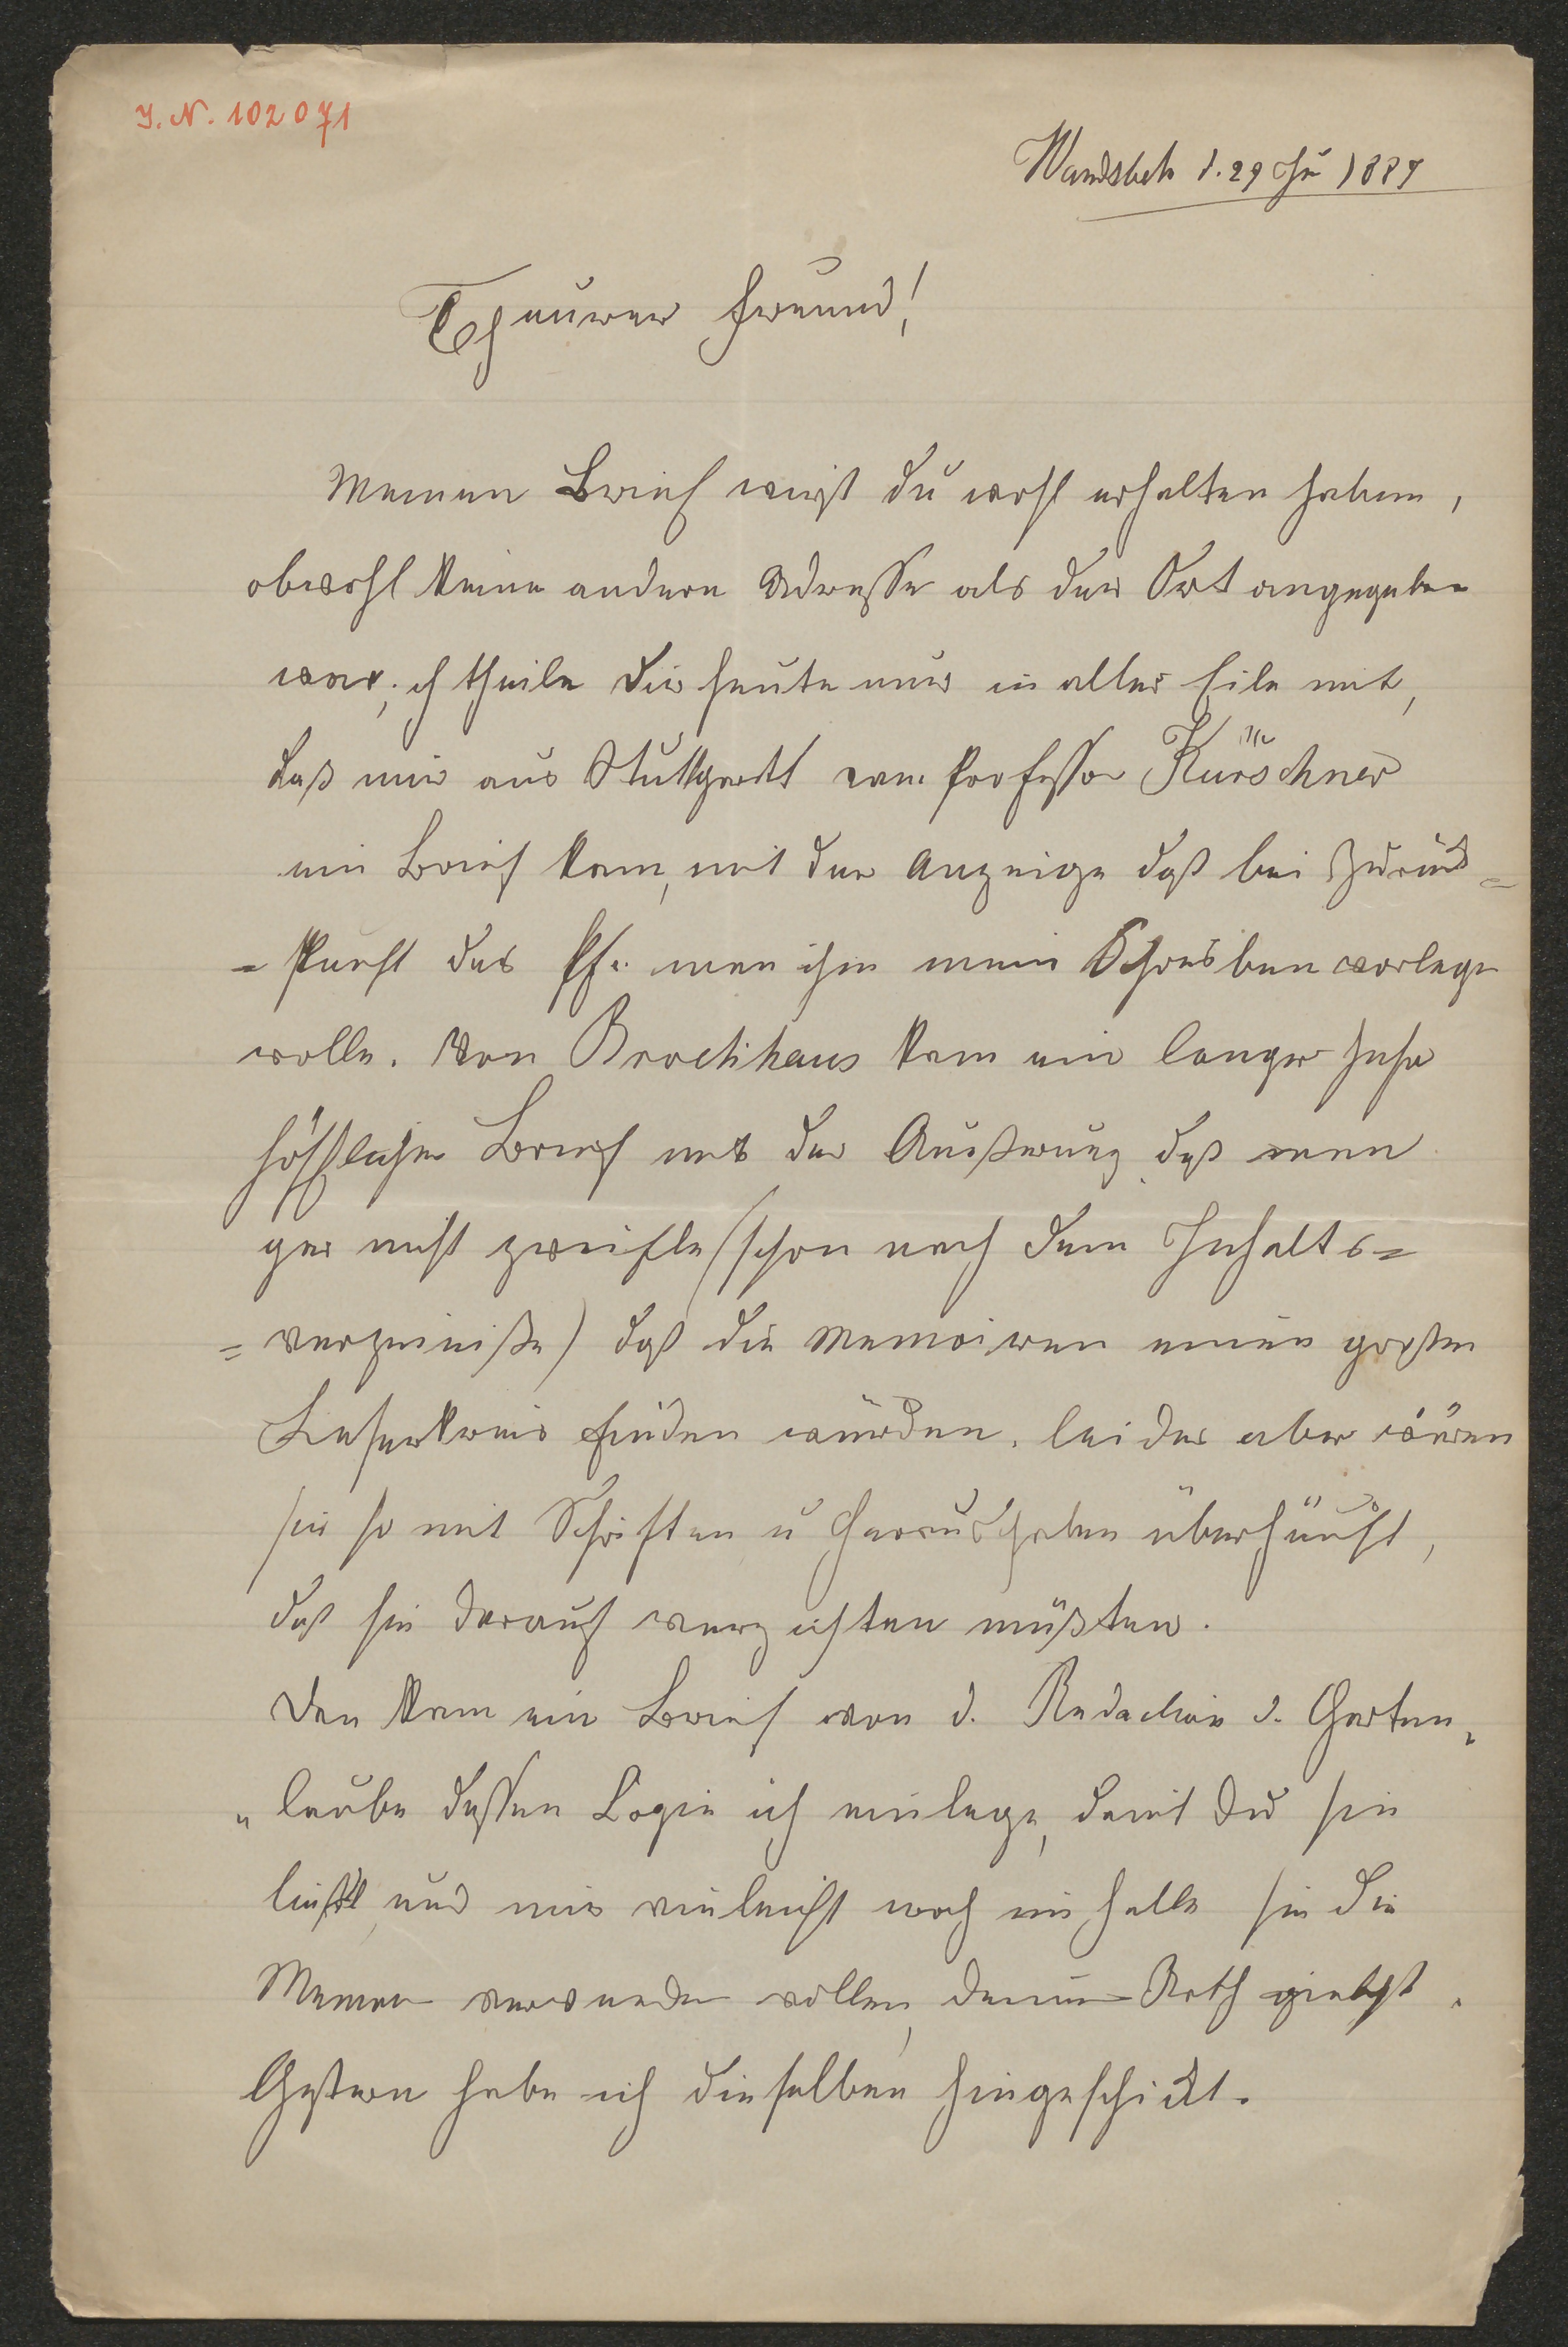 J. N. 102071
Wandsbek d. 29 Ju 1887
Theurer Freund!
Meinen Brief wirst Du wohl erhalten haben,
obwohl keine andere Adresse als der Ort angegeben
war; ich theile Dir heute nur in aller Eile mit,
daß mir aus Stuttgartt vom Professor Kürschner
ein Brief kam, mit der Anzeige daß bei Zurück=
=kunft des Pf. man ihm mein Schreiben vorlege
wolle. Von Brockhaus kam ein langer sehr
höfflicher Brief mit der Äußerung, daß man
gar nicht zweifle (schon nach dem Inhalts=
=verzeiniße) daß die Memoiren einen großen
Leserkreis finden würden, leider aber wären
sie so mit Schriften u Herausgaben überhäuft,
daß sie darauf verzichten müßten.
Den kam ein Brief von d. Redaction d. Garten„
„laube dessen Copie ich einlege, damit Du sie
liest und mir vieleicht noch im Falle sie die
Memoi verwenden wollen, deinen Rath giebst.
Gestern habe ich dieselben hingeschickt.